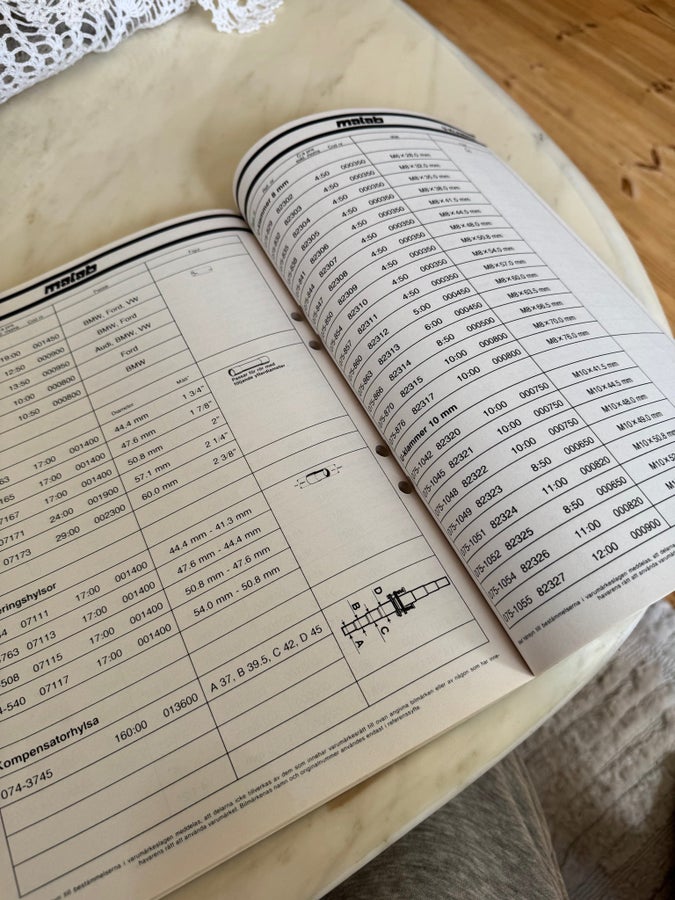 matab
Passar
Figur
19:00 001450 BMW, Ford, VW
12:50 000900 BMW, Ford
13:50 000950 Audi, BMW, VW
10:00 000800 Ford
10:50 000800 BMW
Passar för rör med
följande ytterdiametrar
Diameter Mått
17:00 001400 44.4 mm 1 3/4"
17:00 001400 47.6 mm 1 7/8"
07167 17:00 001400 50.8 mm 2"
07171 24:00 001900 57.1 mm 2 1/4"
07173 29:00 002300 60.0 mm 2 3/8"
eringshylsor
07111 17:00 001400 44.4 mm - 41.3 mm
07113 17:00 001400 47.6 mm - 44.4 mm
07115 17:00 001400 50.8 mm - 47.6 mm
07117 17:00 001400 54.0 mm - 50.8 mm
Kompensatorhylsa
074-3745 160:00 013600 A 37, B 39.5, C 42, D 45
A B C D
till bestämmelserna i varumärkeslagen meddelas, att delarna icke tillverkas av dem som innehar varumärkesrätt till oven angivna bilmärken eller av någon som har inne-
havarens rätt att använda varumärket. Bilmärkenas namn och originalnummer användes endast i referenssyfte.
matab
klammer 8 mm
82302 4:50 000350 M8×28.0 mm
82303 4:50 000350 M8×32.0 mm
82304 4:50 000350 M8×35.0 mm
82305 4:50 000350 M8×38.0 mm
82306 4:50 000350 M8×41.5 mm
82307 4:50 000350 M8×44.5 mm
82308 4:50 000350 M8×48.0 mm
82309 4:50 000350 M8×50.8 mm
82310 4:50 000350 M8×54.0 mm
82311 4:50 000350 M8×57.0 mm
82312 5:00 000450 M8×60.0 mm
82313 6:00 000450 M8×63.5 mm
82314 8:50 000500 M8×66.5 mm
82315 10:00 000800 M8×70.0 mm
82317 10:00 000800 M8×76.0 mm
-klammer 10 mm
075-1042 82320 10:00 000750 M10×41.5 mm
075-1045 82321 10:00 000750 M10×44.5 mm
075-1048 82322 10:00 000750 M10×48.0 mm
075-1049 82323 8:50 000650 M10×49.0 mm
075-1051 82324 11:00 000820 M10×50.8 mm
075-1052 82325 8:50 000650 M10×52
075-1054 82326 11:00 000820
075-1055 82327 12:00 000900
till bestämmelserna i varumärkeslagen meddelas, att delarna
havarens rätt att använda varumä